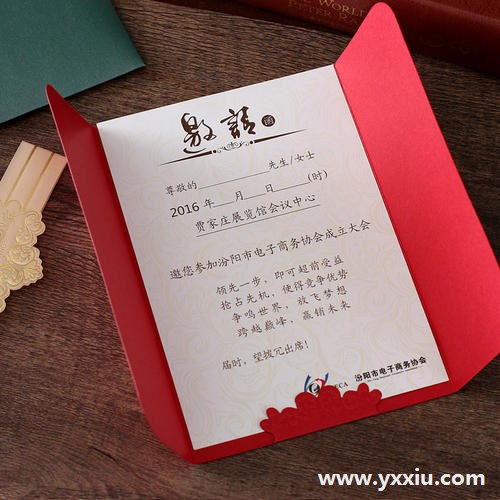 THE WORLD
PETER RA
邀請函
尊敬的 先生/女士
2016 年 月 日 (时)
贾家庄展览馆会议中心
邀您参加汾阳市电子商务协会成立大会
领先一步，即可超前受益
抢占先机，使得竞争优势
争鸣世界，放飞梦想
跨越巅峰，赢销未来
届时，望拨冗出席！
ECA 汾阳市电子商务协会
www.yxxiu.com